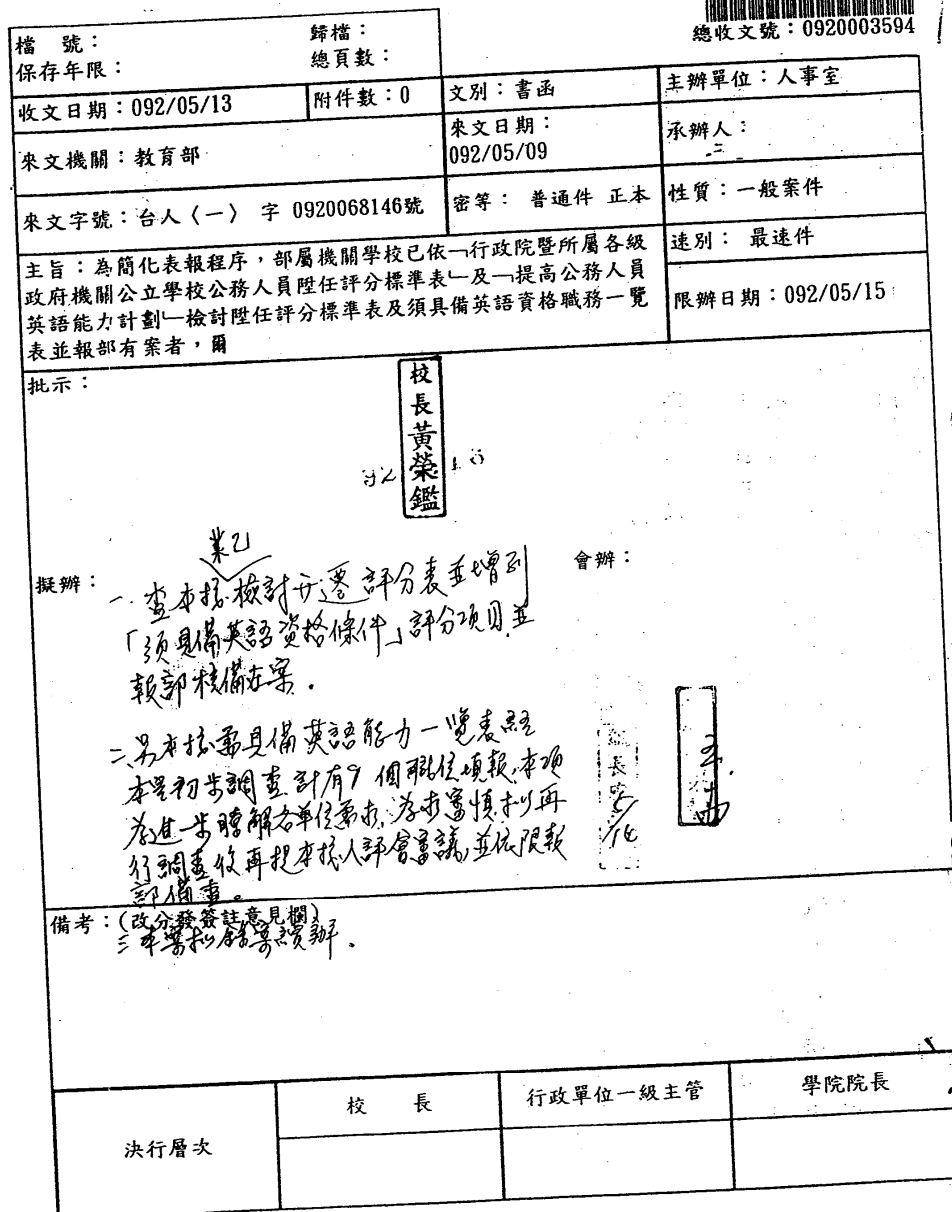 總收文號：0920003594
檔　號：
歸檔：
保存年限：
總頁數：
收文日期：092/05/13
附件數：0
文別：書函
主辦單位：人事室
來文機關：教育部
來文日期：
092/05/09
承辦人：
來文字號：台人〈一〉 字 0920068146號
密等： 普通件 正本
性質：一般案件
主旨：為簡化表報程序，部屬機關學校已依﹁行政院暨所屬各級
政府機關公立學校公務人員陞任評分標準表﹂及﹁提高公務人員
英語能力計劃﹂檢討陞任評分標準表及須具備英語資格職務一覽
表並報部有案者，爾
速別： 最速件
限辦日期：092/05/15
批示：
校長黃榮鑑
擬辦：
業已
一、查本校檢討升遷評分表並增列
「須具備英語資格條件」評分項目並
報部核備在案。
二、另本校需具備英語能力一覽表經
本室初步調查計有9個職位填報，本項
為進一步瞭解各單位需求，為求審慎擬再
行調查後再提本校人評會審議，並依限報
部備查。
會辦：
長
5/14
備考：(改分發簽註意見欄)
三、本案擬錄案續辦。
決行層次
校　長
行政單位一級主管
學院院長